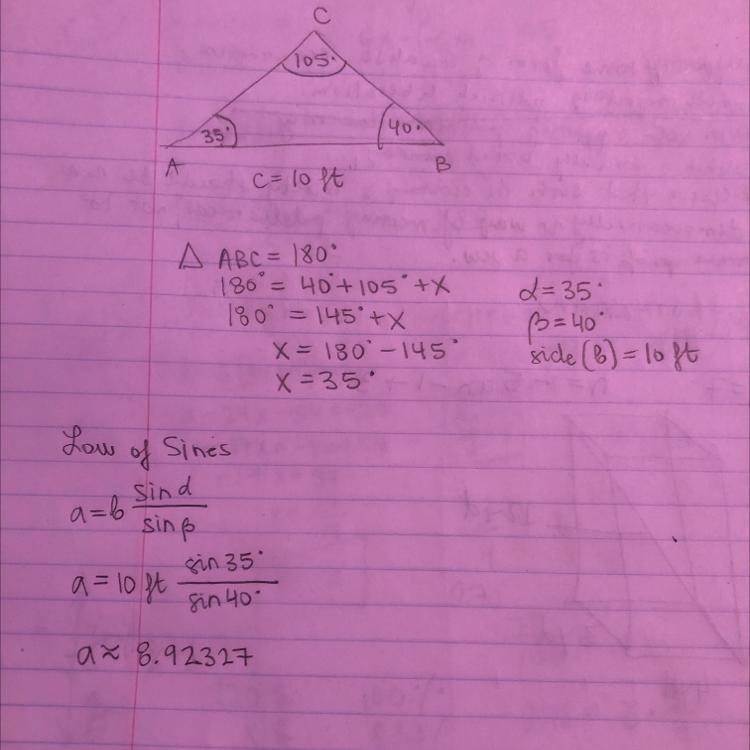 C
105°
35°
40°
A
B
c = 10 ft
△ ABC = 180°
180° = 40° + 105° + x
180° = 145° + x
x = 180° - 145°
x = 35°
α = 35°
β = 40°
side (b) = 10 ft
Law of Sines
a = b sin α / sin β
a = 10 ft sin 35° / sin 40°
a ≈ 8.92327